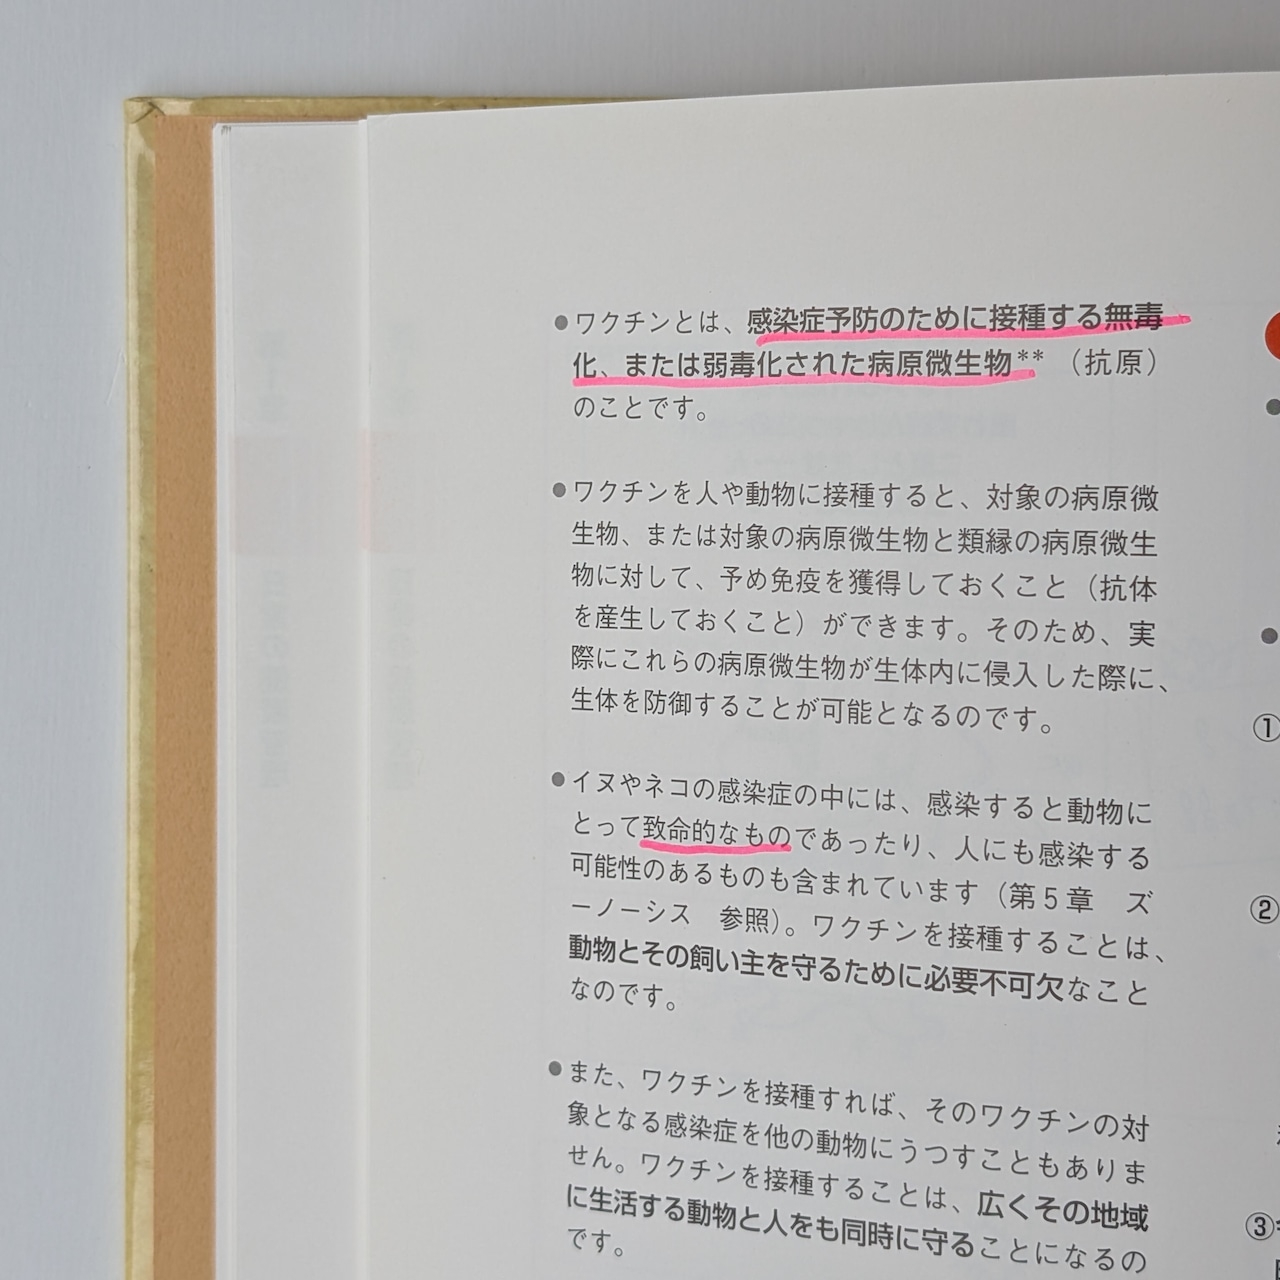 ●ワクチンとは、感染症予防のために接種する無毒
化、または弱毒化された病原微生物**（抗原）
のことです。
●ワクチンを人や動物に接種すると、対象の病原微
生物、または対象の病原微生物と類縁の病原微生
物に対して、予め免疫を獲得しておくこと（抗体
を産生しておくこと）ができます。そのため、実
際にこれらの病原微生物が生体内に侵入した際に、
生体を防御することが可能となるのです。
●イヌやネコの感染症の中には、感染すると動物に
とって致命的なものであったり、人にも感染する
可能性のあるものも含まれています（第5章　ズ
ーノーシス　参照）。ワクチンを接種することは、
動物とその飼い主を守るために必要不可欠なこと
なのです。
●また、ワクチンを接種すれば、そのワクチンの対
象となる感染症を他の動物にうつすこともありま
せん。ワクチンを接種することは、広くその地域
に生活する動物と人をも同時に守ることになるの
です。
①
②
③